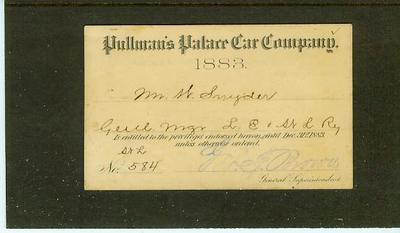 Pullman's Palace Car Company.
1883.
Mr. W. Snyder
Genl Mgr. L, E & St L Ry
Is entitled to the privileges endorsed hereon, until Dec. 31st 1883,
unless otherwise ordered.
St L
No. 584
General Superintendent.